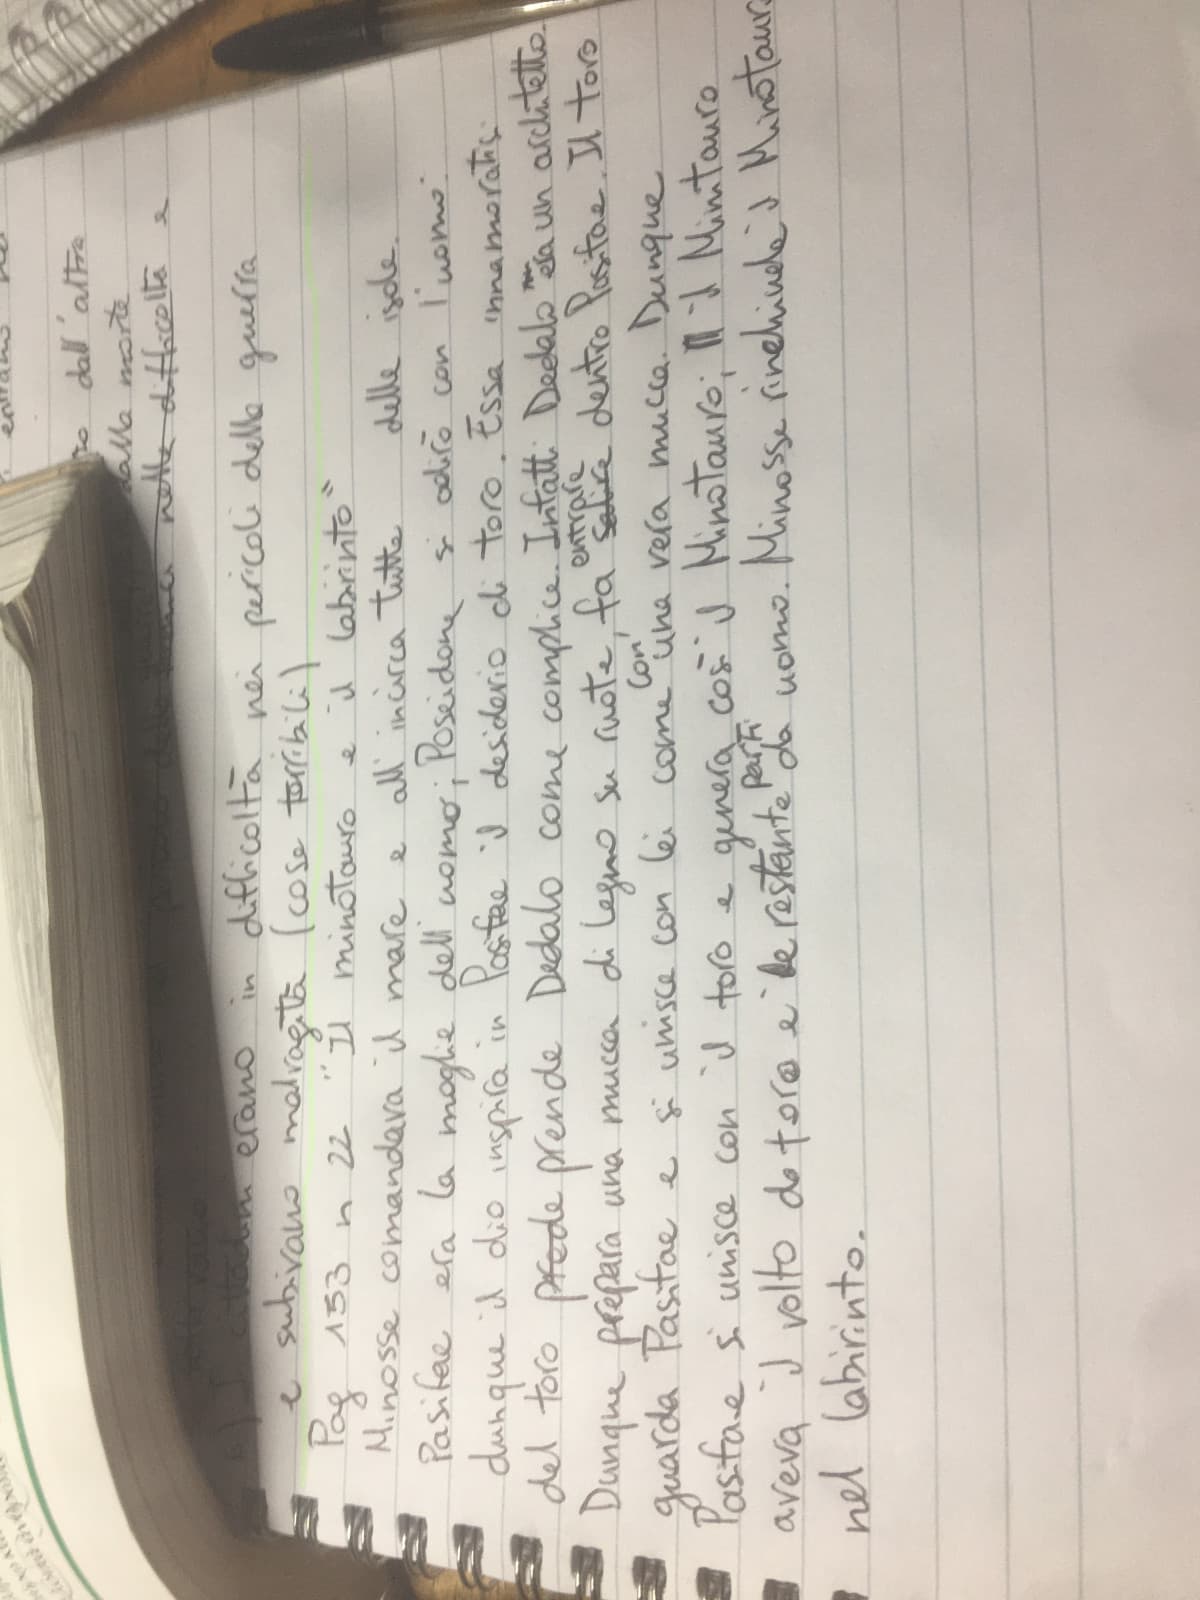 entrano nei
dall'altra
dalla morte
nelle difficoltà e
cittadini erano in difficoltà nei pericoli della guerra
e subivano malvagità (cose terribili)
Pag 153 n 22 "Il minotauro e il labirinto"
Minosse comandava il mare e all'incirca tutte delle isole.
Pasifae era la moglie dell'uomo; Poseidone si adirò con l'uomo.
dunque il dio inspira in Pasifae il desiderio di toro. Essa innamoratasi
del toro prede prende Dedalo come complice. Infatti Dedalo era un architetto.
Dunque prepara una mucca di legno su ruote, fa entrare dentro Pasifae. Il toro
guarda Pasifae e si unisce con lei come con una vera mucca. Dunque
Pasifae si unisce con il toro e genera così il Minotauro; il Mintauro
aveva il volto di toro e le restante parti da uomo. Minosse rinchiude il Minotauro
nel labirinto.